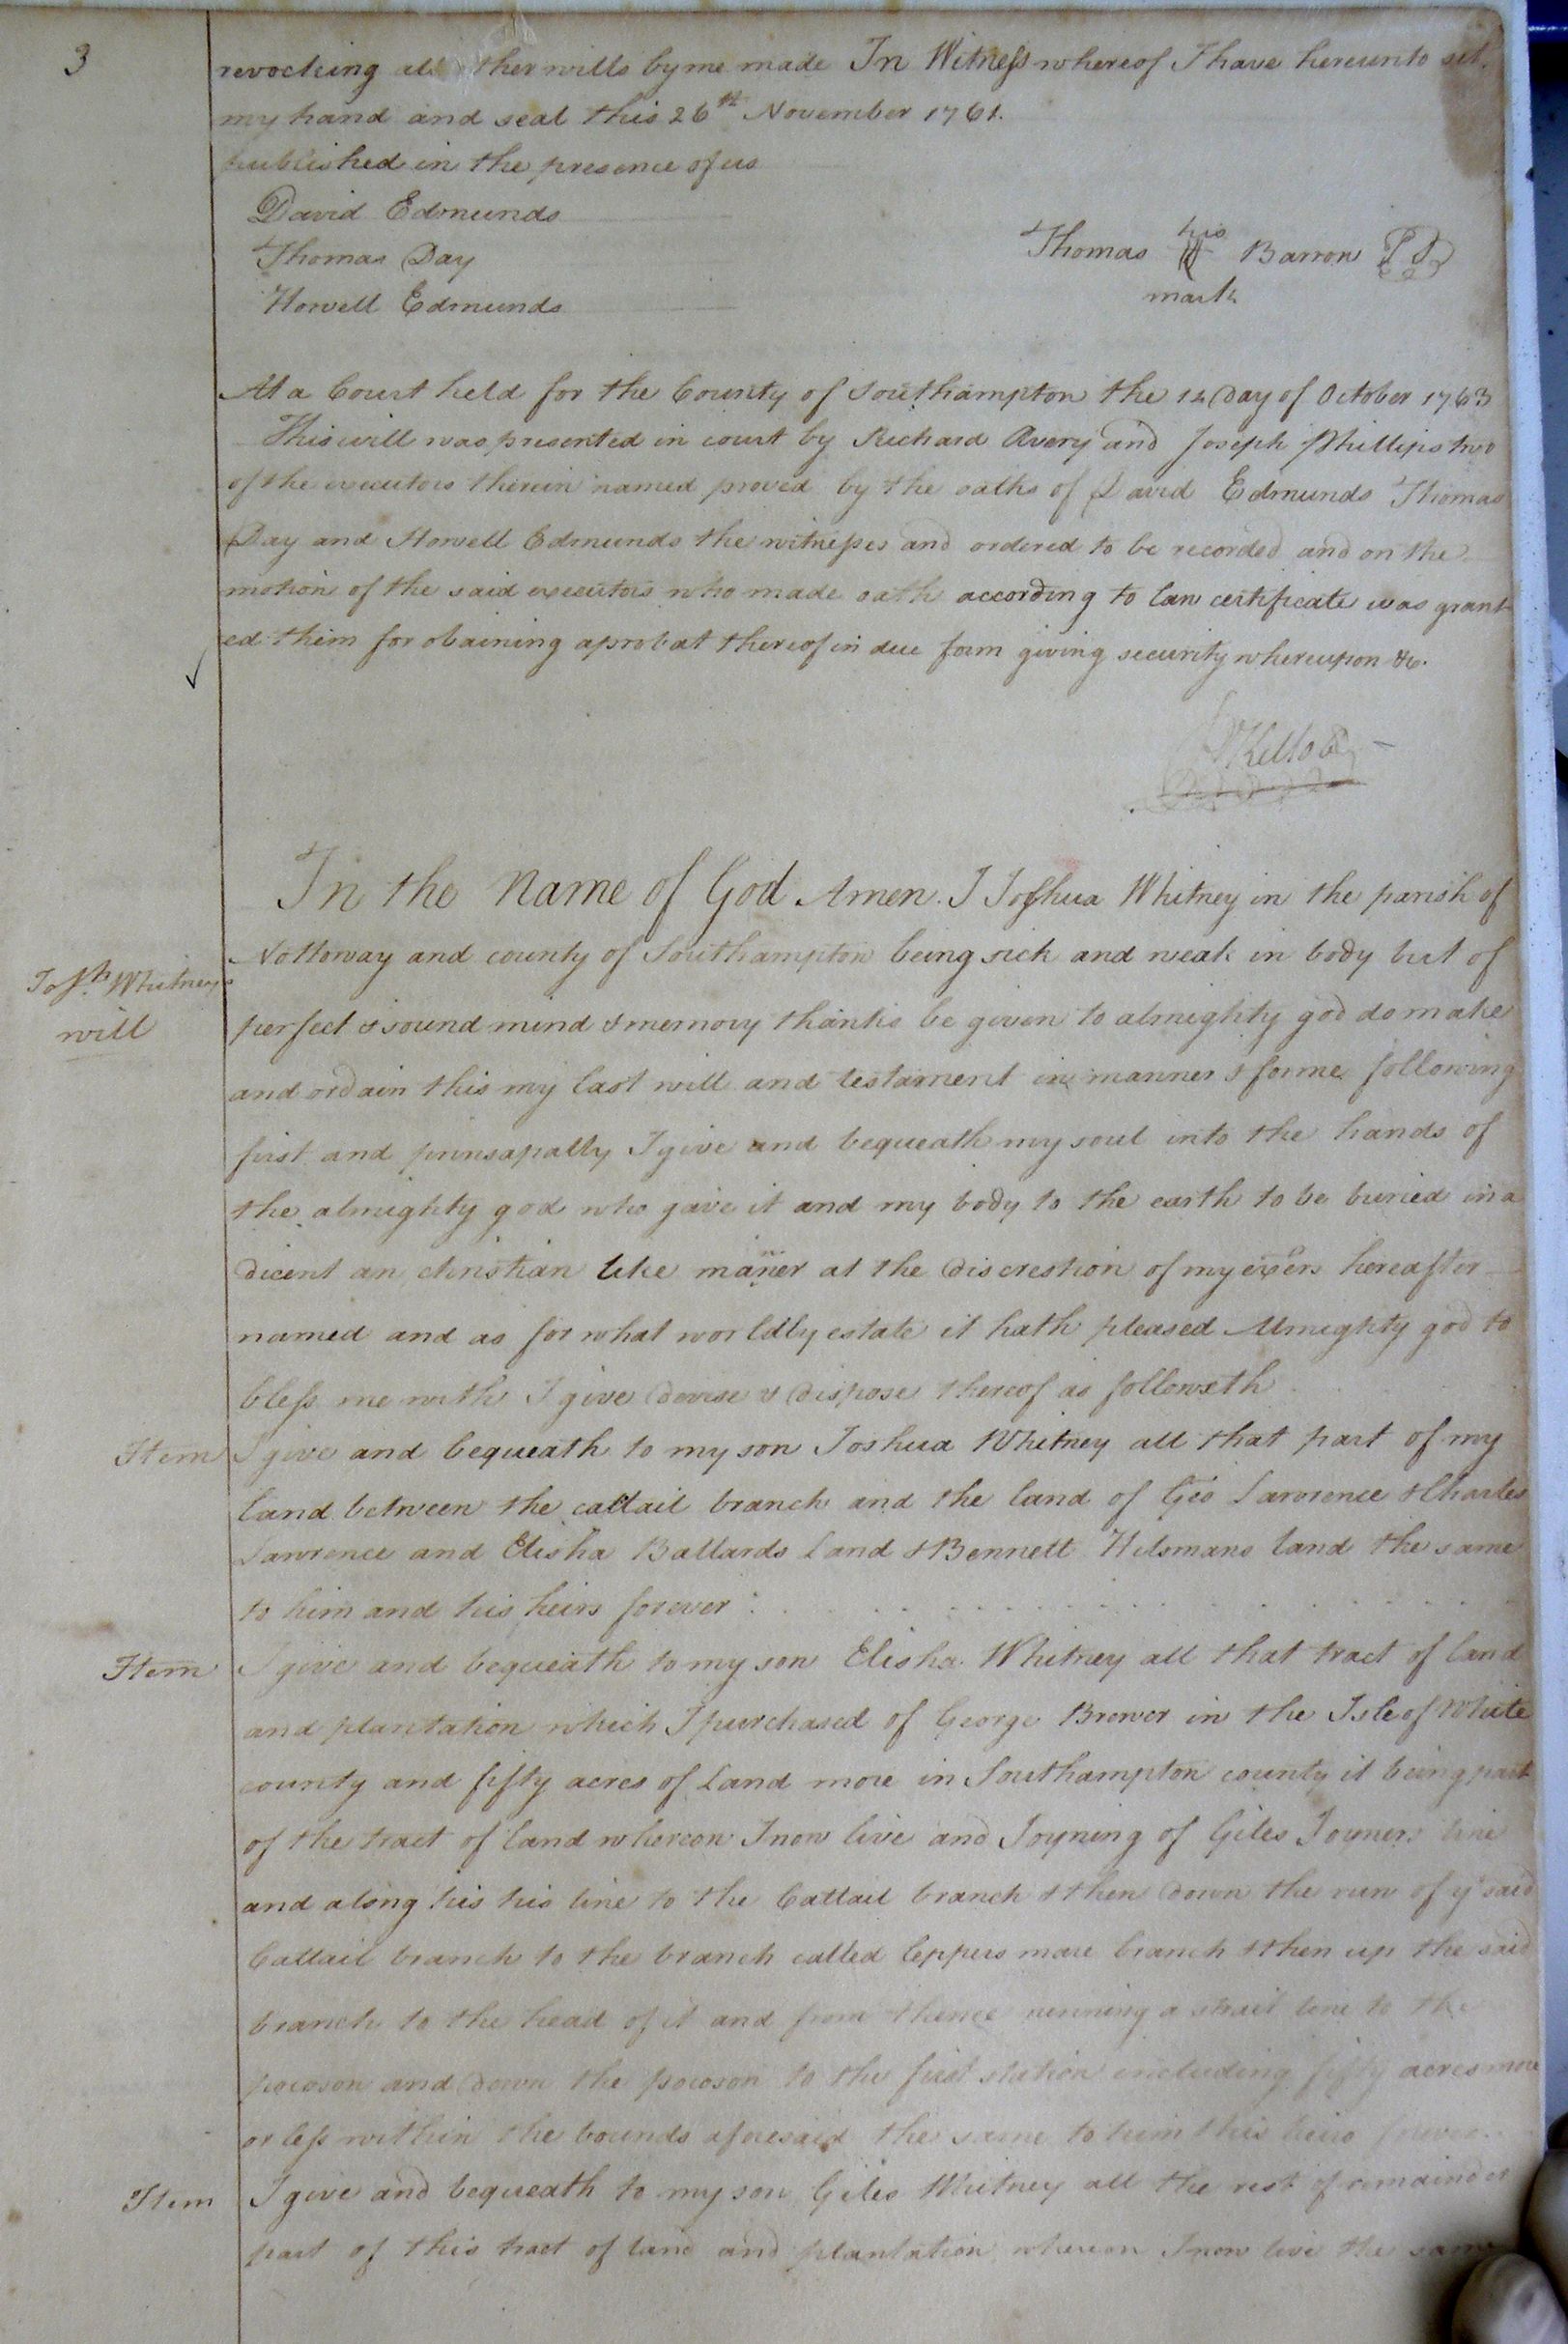 3
revocking all other wills by me made In Witness whereof I have hereunto set
my hand and seal this 26th November 1761.
published in the presence of us
David Edmunds
Thomas Day
Howell Edmunds
his
Thomas Barron
mark
At a Court held for the County of Southampton the 12 Day of October 1763
This will was presented in court by Richard Avery and Joseph Phillips two
of the executors therein named proved by the oaths of David Edmunds Thomas
Day and Howell Edmunds the witnesses and ordered to be recorded and on the
motion of the said executors who made oath according to law certificate was grant
ed them for obaining a probat thereof in due form giving security whereupon &c.
In the Name of God Amen. I Joshua Whitney in the parish of
Nottoway and county of Southampton being sick and weak in body but of
Josh. Whitneys
will
perfect & sound mind & memory thanks be given to almighty god do make
and ordain this my last will and testament in manner & forme following
first and prinsapally I give and bequeath my soul into the hands of
the almighty god who gave it and my body to the earth to be buried in a
dicent an christian like maner at the discrestion of my exers hereafter
named and as for what worldly estate it hath pleased Almighty god to
bless me with I give devise & dispose thereof as followeth
Item I give and bequeath to my son Joshua Whitney all that part of my
land between the cattail branch and the land of Geo Lawrence & Charles
Lawrence and Elisha Ballards land & Bennett Hilsmans land the same
to him and his heirs forever
Item I give and bequeath to my son Elisha Whitney all that tract of land
and plantation which I purchased of George Brewer in the Isle of White
county and fifty acres of land more in Southampton county it being part
of the tract of land whereon I now live and Joyning of Giles Joyners line
and along his his line to the Cattail branch & then down the run of ye said
Cattail branch to the branch called leppers mare branch & then up the said
branch to the head of it and from thence running a strait line to the
pocoson and down the pocoson to the first station including fifty acres more
or less within the bounds aforesaid the same to him & his heirs forever
Item I give and bequeath to my son Giles Whitney all the rest of remainder
part of this tract of land and plantation whereon I now live the same